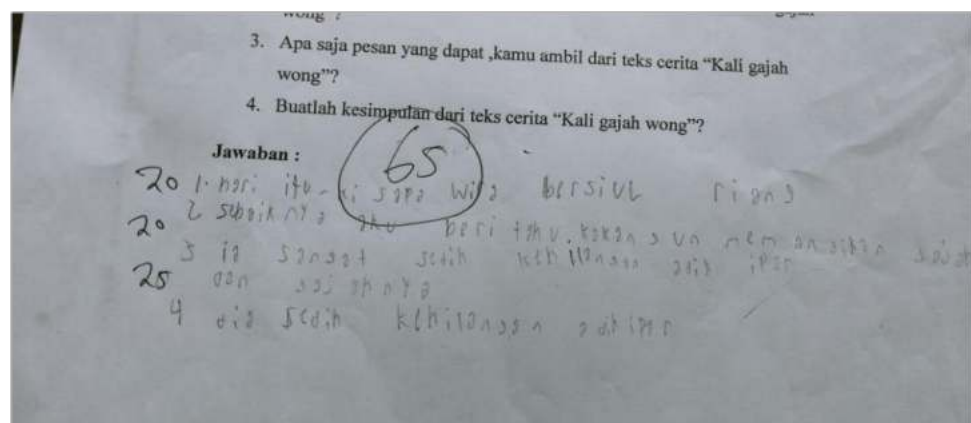 wong ?
3. Apa saja pesan yang dapat ,kamu ambil dari teks cerita “Kali gajah
wong”?
4. Buatlah kesimpulan dari teks cerita “Kali gajah wong”?
Jawaban :
65
20 1. hari itu ki sapa wira bersiul riang
20 2 sebaiknya aku beri tahu. kakang un memandikan gajah
3 ia sangat sedih kehilangan adik ipar
25 dan gajahnya
4 dia sedih kehilangan adik ipar